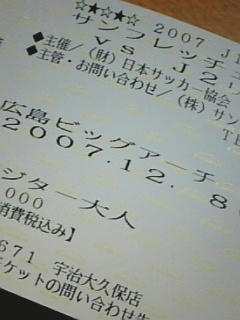 ☆★☆★☆ 2007 J1
サンフレッチェ
VS J2
◆主催/(財)日本サッカー協会
◆主管・お問い合わせ/(株)サン
TE
広島ビッグアーチ
2007.12. 8
ジター大人
000
消費税込み】
671 宇治大久保店
ケットの問い合わせ先